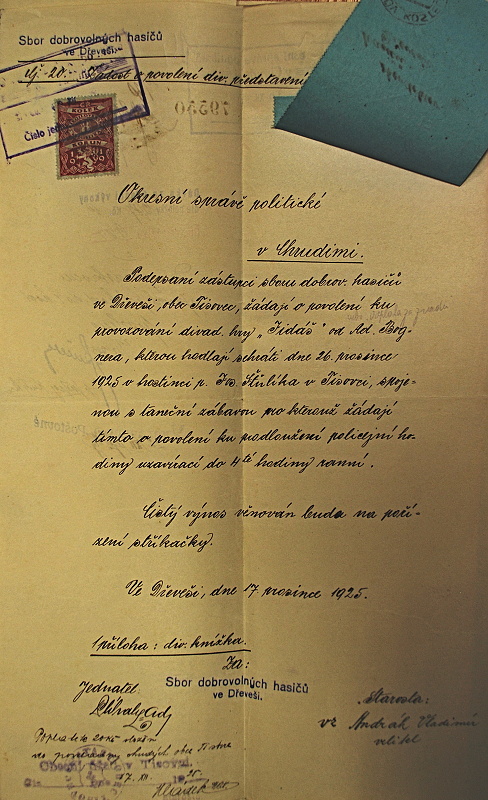 Sbor dobrovolných hasičů
ve Dřeveši.
Čj-20. Žádost o povolení div. představení
Číslo jed
79550
KOLEK
KORUN
Okresní správě politické
v Chrudimi.
Podepsaní zástupci sboru dobrov. hasičů
ve Dřeveši, obec Tisovec, žádají o povolení ku
provozování divad. hry „Jidáš" od Ad. Bog-
nera, kterou hodlají sehráti dne 26. prosince
1925 v hostinci p. Jos. Štulíka v Tisovci, spoje-
nou s taneční zábavou pro kterouž žádají
tímto o povolení ku prodloužení policejní ho-
diny uzavírací do 4té hodiny ranní.
Čistý výnos věnován bude na poří-
zení stříkačky.
Ve Dřeveši, dne 17. prosince 1925.
1 příloha: div. knížka.
Za:
Sbor dobrovolných hasičů
ve Dřeveši.
Jednatel
Starosta:
Andrák Vladimír
velitel
Poplatek 20 Kč složen
ve prospěch chudých obce Tisovce
Obecní v Tisovci
17. XII. 1925